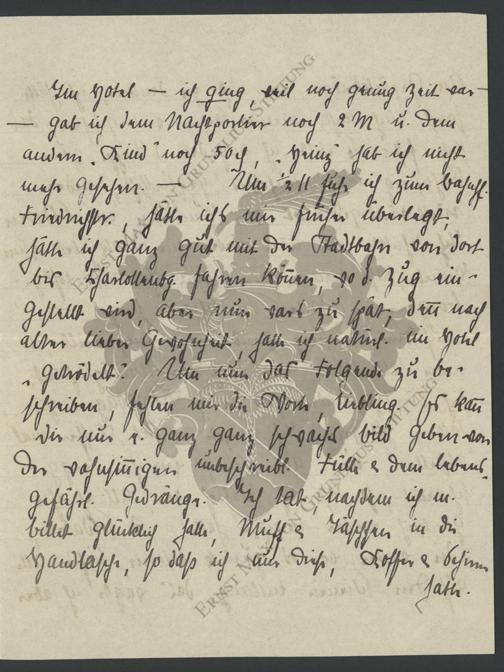 Im Hotel – ich ging, weil noch genug Zeit war –
– gab ich dem Nachtportier noch 2 M u. dem
andern „Kind" noch 50 ch, „Heinz" hab ich nicht
mehr gesehen. – Um ½ 11 fuhr ich zum Bahnhf.
Friedrichstr., hätte ichs mir früher überlegt,
hätte ich ganz gut mit der Stadtbahn von dort
bis Charlottenbg. fahren können, wo d. Zug ein-
gestellt wird, aber nun wars zu spät, denn nach
alter lieber Gewohnheit, hatte ich natürl. im Hotel
„getrödelt". Um nun das Folgende zu be-
schreiben, fehlen mir die Worte, Liebling. Ich kann
Dir nur e. ganz ganz schwaches Bild geben von
der wahnsinnigen unbeschreibl. Fülle & dem lebens-
gefährl. Gedränge. Ich tat nachdem ich m.
Billet glücklich hatte, Muff & Täschchen in die
Handtasche, so daß ich nur diese, Koffer & Schirm
hatte.
ERNST MAX VON GRUNELIUS-STIFTUNG
ERNST MAX VON GRUNELIUS-STIFTUNG